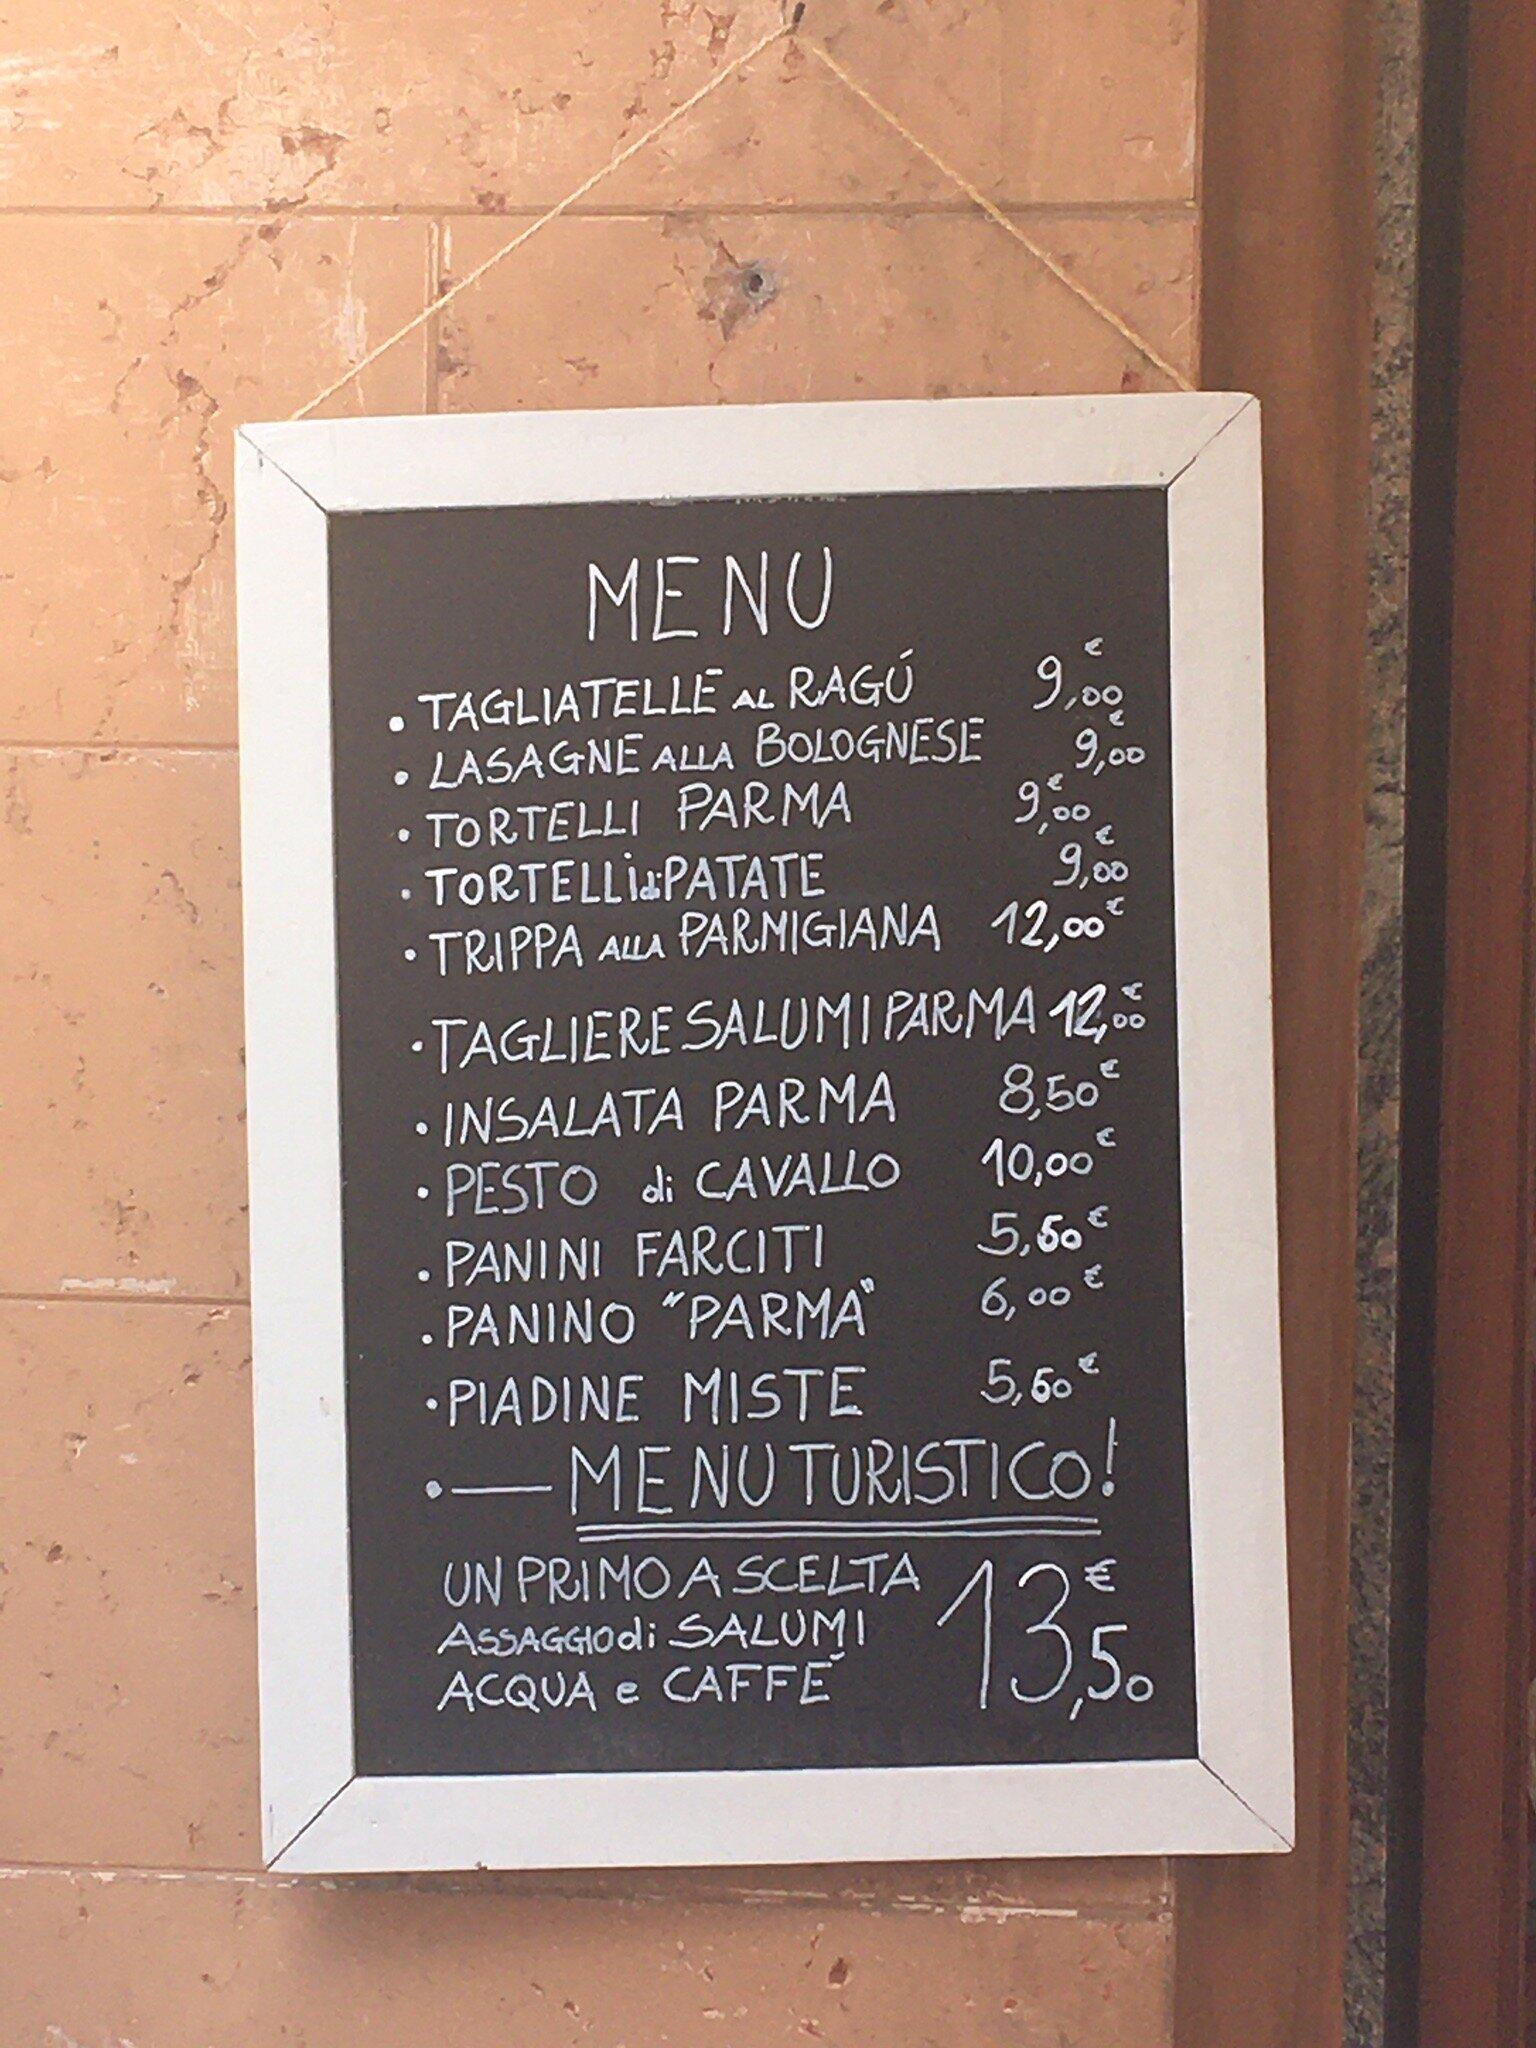 MENU
• TAGLIATELLE AL RAGÚ 9,00 €
• LASAGNE ALLA BOLOGNESE 9,00 €
• TORTELLI PARMA 9,00 €
• TORTELLI di PATATE 9,00 €
• TRIPPA ALLA PARMIGIANA 12,00 €
• TAGLIERE SALUMI PARMA 12,00 €
• INSALATA PARMA 8,50 €
• PESTO di CAVALLO 10,00 €
• PANINI FARCITI 5,50 €
• PANINO "PARMA" 6,00 €
• PIADINE MISTE 5,50 €
• — MENU TURISTICO!
UN PRIMO A SCELTA 13,50 €
ASSAGGIO di SALUMI
ACQUA e CAFFÉ